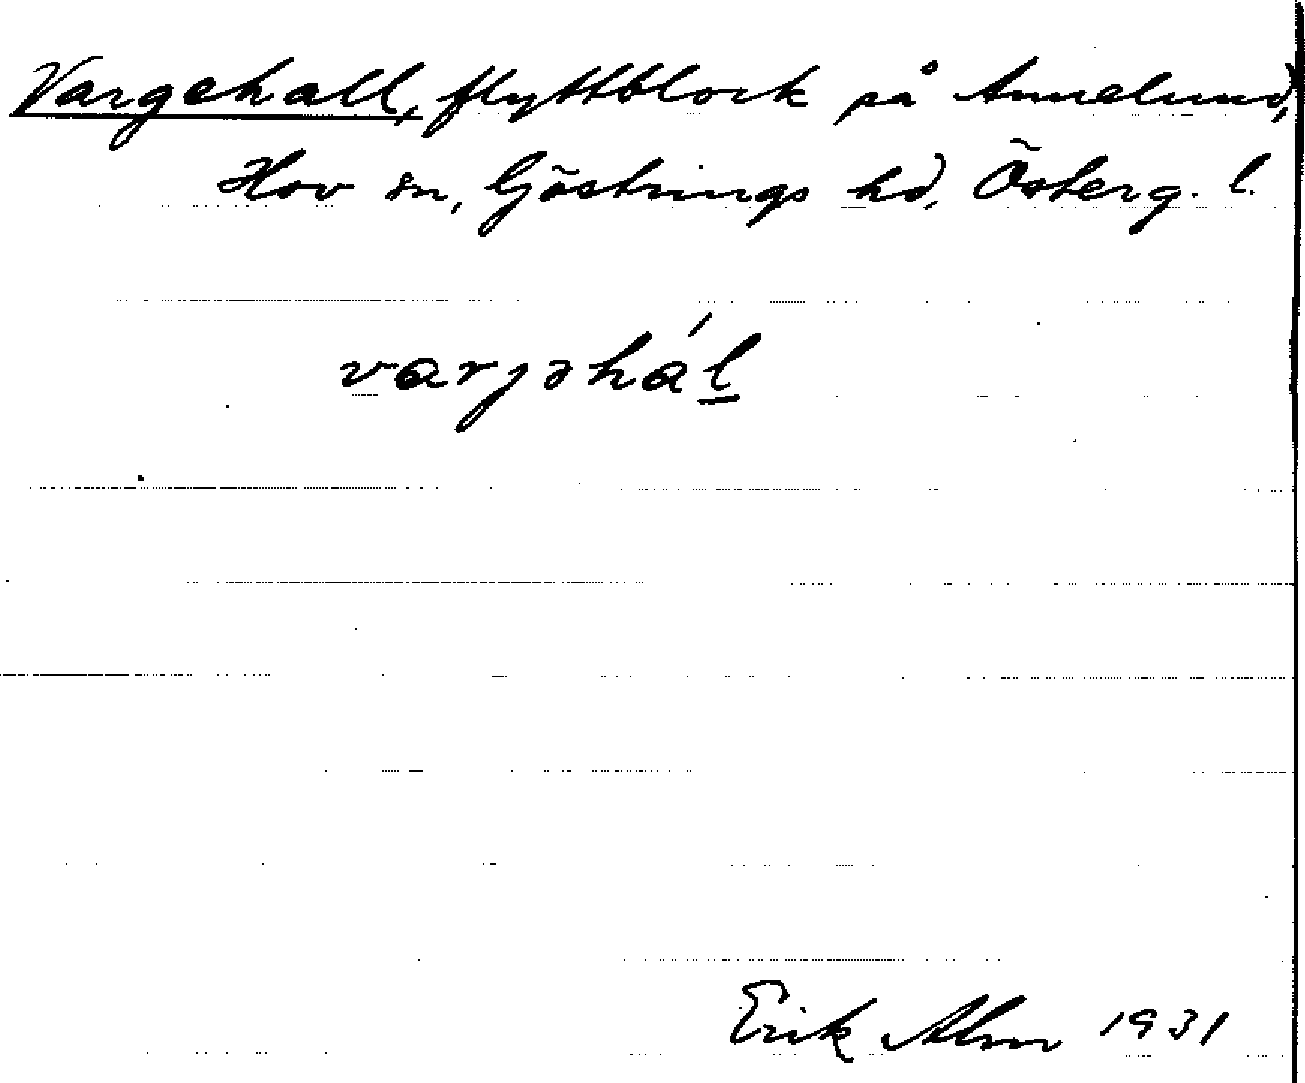 Vargehall, flyttblock på Annelund,
Hov sn, Göstrings hd, Österg. l.
varjəhál
Erik Alm 1931